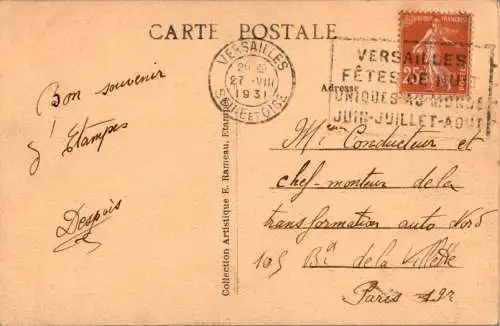 CARTE POSTALE
VERSAILLES
27-VIII
1931
SEINE ET OISE
VERSAILLES
FÊTES DE NUIT
UNIQUES AU MONDE
JUIN-JUILLET-AOUT
Adresse
Bon souvenir
d'Etampes
Collection Artistique E. Rameau, Etampes
Conducteur et
chef-monteur de la
transformation auto Nord
105 Bd de la Villette
Paris